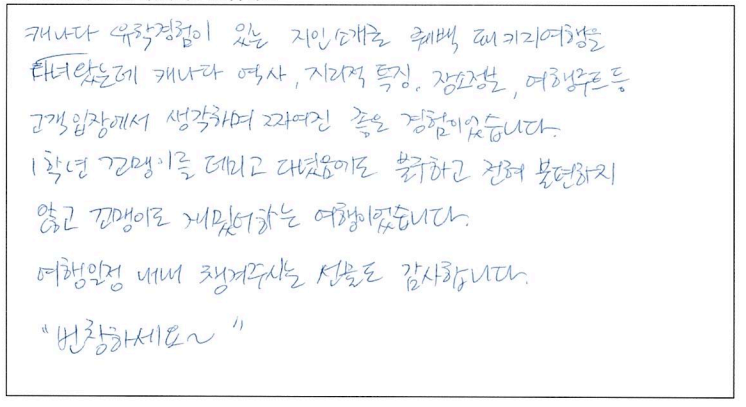 캐나다 유학경험이 있는 지인소개로 퀘백 패키지여행을
다녀왔는데 캐나다 역사, 지리적 특징, 장소정보, 여행루트 등
고객입장에서 생각하며 짜여진 좋은 경험이었습니다.
1학년 꼬맹이를 데리고 다녔음에도 불구하고 전혀 불편하지
않고 꼬맹이도 재밌어하는 여행이었습니다.
여행일정 내내 챙겨주시는 선물도 감사합니다.
"번창하세요~"